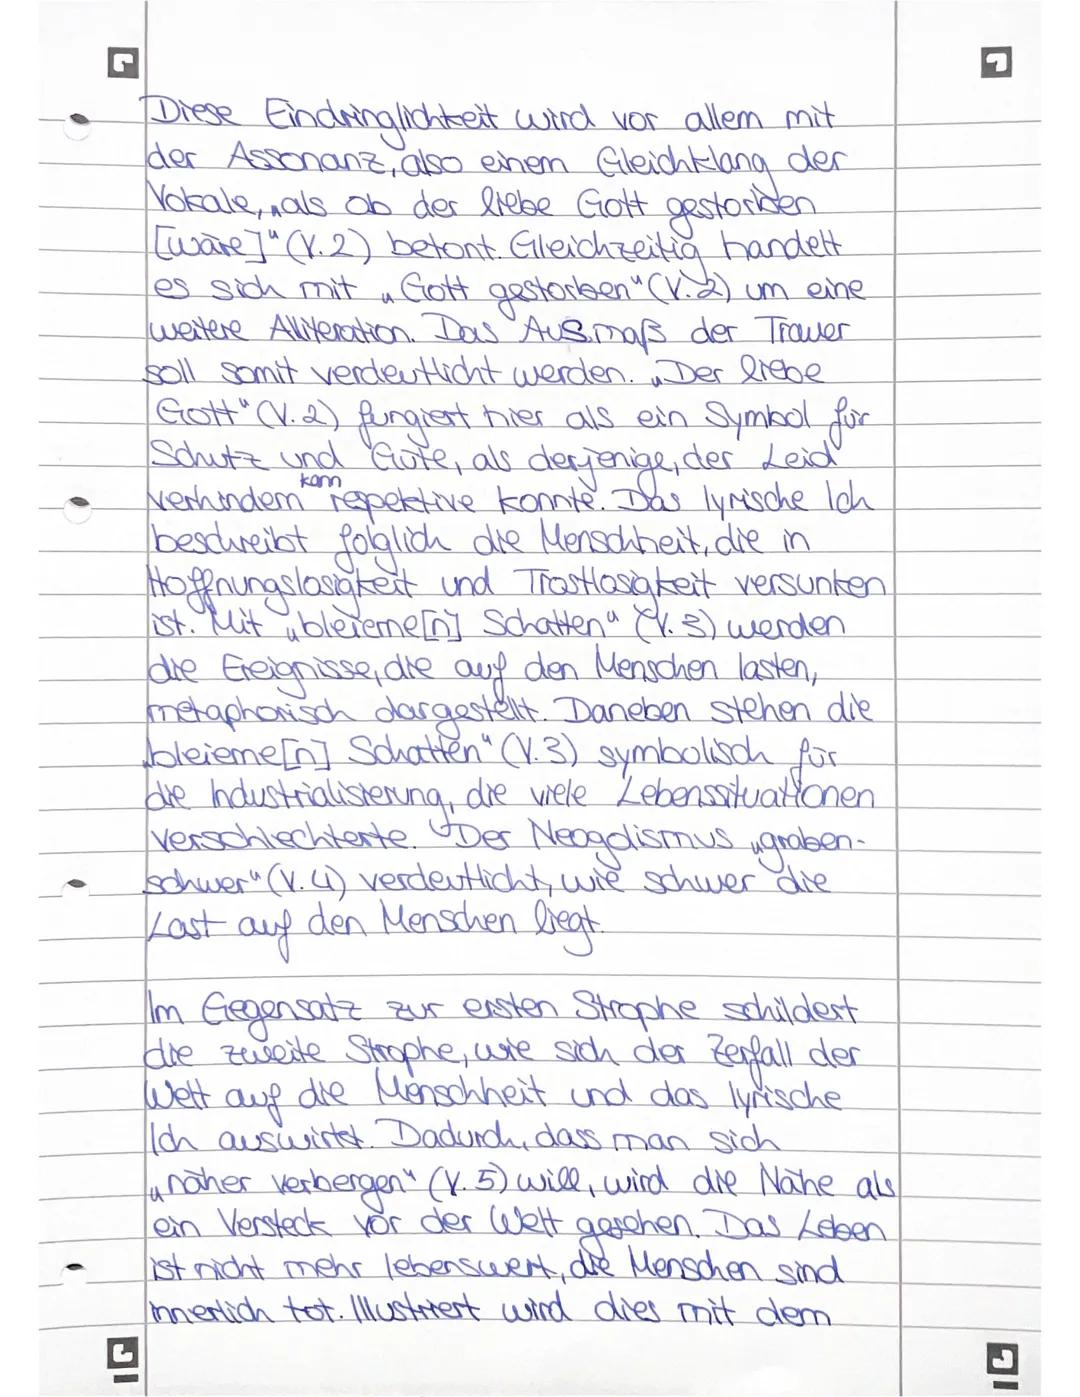 Diese Eindringlichkeit wird vor allem mit
der Assonanz, also einem Gleichklang der
Vokale, „als ob der liebe Gott gestorben
[wäre]“ (V.2) betont. Gleichzeitig handelt
es sich mit „Gott gestorben“ (V.2) um eine
weitere Alliteration. Das Ausmaß der Trauer
soll somit verdeutlicht werden. „Der liebe
Gott“ (V.2) fungiert hier als ein Symbol für
Schutz und Güte, als derjenige, der Leid
verhindern kann respektive konnte. Das lyrische Ich
beschreibt folglich die Menschheit, die in
Hoffnungslosigkeit und Trostlosigkeit versunken
ist. Mit „bleierne[n] Schatten“ (V.3) werden
die Ereignisse, die auf den Menschen lasten,
metaphorisch dargestellt. Daneben stehen die
„bleierne[n] Schatten“ (V.3) symbolisch für
die Industrialisierung, die viele Lebenssituationen
verschlechterte. Der Neogolismus „graben-
schwer“ (V.4) verdeutlicht, wie schwer die
Last auf den Menschen liegt.
Im Gegensatz zur ersten Strophe schildert
die zweite Strophe, wie sich der Zerfall der
Welt auf die Menschheit und das lyrische
Ich auswirkt. Dadurch, dass man sich
„näher verbergen“ (V.5) will, wird die Nähe als
ein Versteck vor der Welt gesehen. Das Leben
ist nicht mehr lebenswert, die Menschen sind
innerlich tot. Illustriert wird dies mit dem